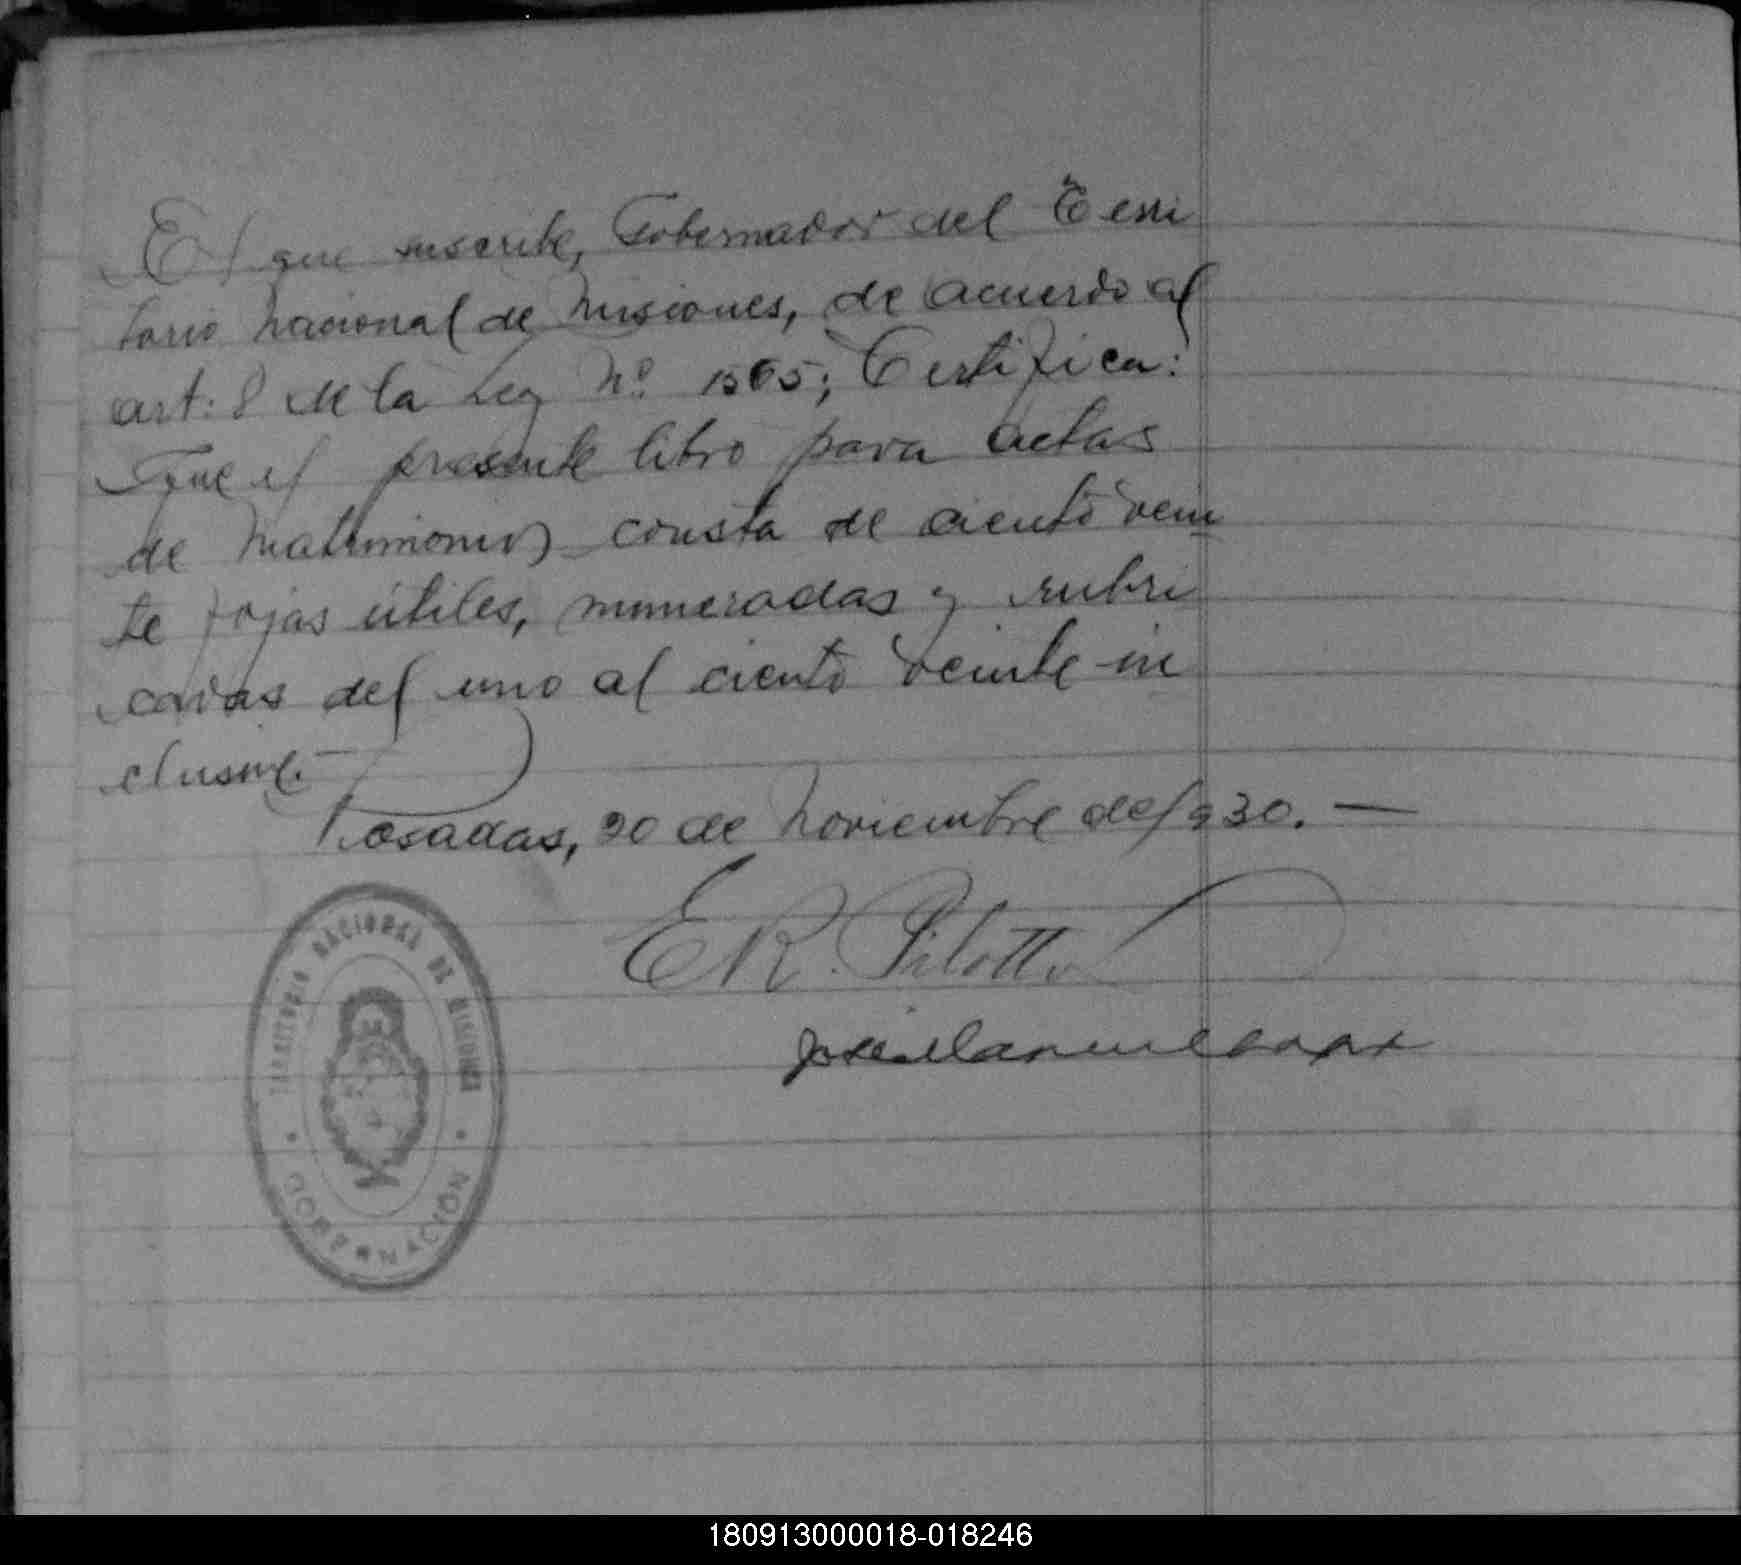 El que suscribe, Gobernador del Terri
torio Nacional de Misiones, de acuerdo al
art: 8 de la Ley Nº 1565; Certifica:
Que el presente libro para actas
de Matrimonios consta de ciento vein
te fojas útiles, numeradas y rubri
cadas del uno al ciento veinte in
clusive.—
Posadas, 20 de Noviembre de 1930.—
E R. Pilotto
TERRITORIO NACIONAL DE MISIONES
GOBERNACIÓN
180913000018-018246